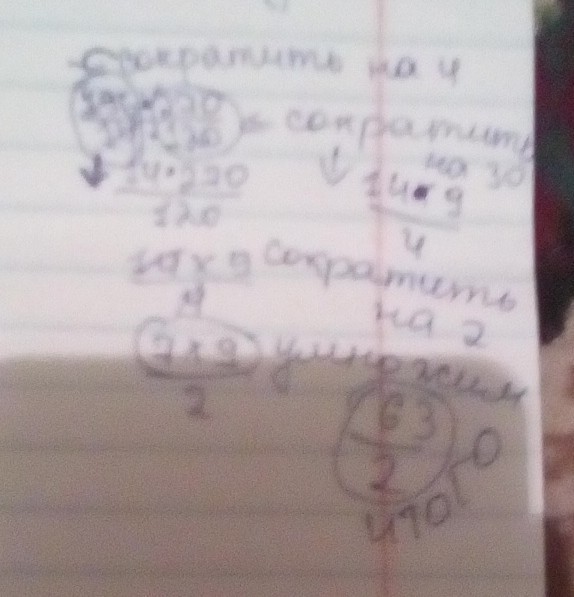 сократить на 4
сократить
на 30
14•270
120
14•9
4
сократить
на 2
7×9
2
умножим
63
2
итого